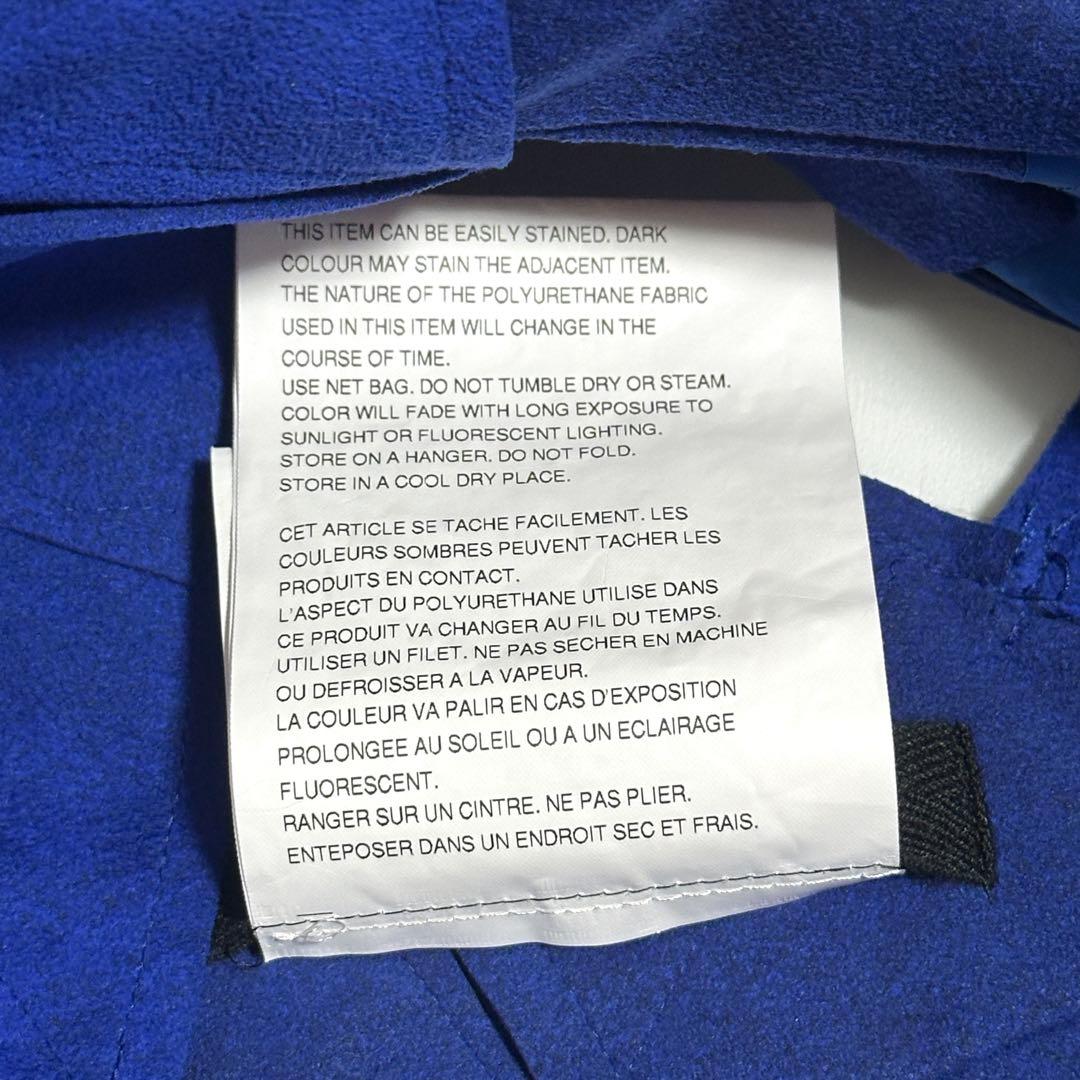 THIS ITEM CAN BE EASILY STAINED. DARK
COLOUR MAY STAIN THE ADJACENT ITEM.
THE NATURE OF THE POLYURETHANE FABRIC
USED IN THIS ITEM WILL CHANGE IN THE
COURSE OF TIME.
USE NET BAG. DO NOT TUMBLE DRY OR STEAM.
COLOR WILL FADE WITH LONG EXPOSURE TO
SUNLIGHT OR FLUORESCENT LIGHTING.
STORE ON A HANGER. DO NOT FOLD.
STORE IN A COOL DRY PLACE.
CET ARTICLE SE TACHE FACILEMENT. LES
COULEURS SOMBRES PEUVENT TACHER LES
PRODUITS EN CONTACT.
L'ASPECT DU POLYURETHANE UTILISE DANS
CE PRODUIT VA CHANGER AU FIL DU TEMPS.
UTILISER UN FILET. NE PAS SECHER EN MACHINE
OU DEFROISSER A LA VAPEUR.
LA COULEUR VA PALIR EN CAS D'EXPOSITION
PROLONGEE AU SOLEIL OU A UN ECLAIRAGE
FLUORESCENT.
RANGER SUR UN CINTRE. NE PAS PLIER.
ENTEPOSER DANS UN ENDROIT SEC ET FRAIS.